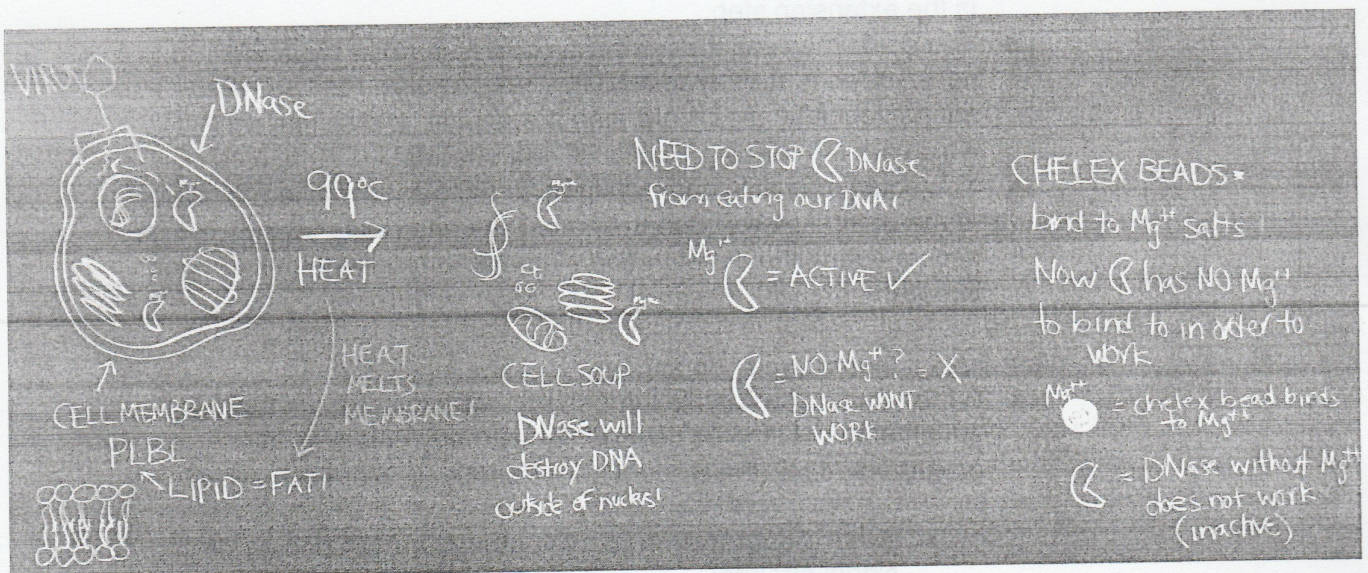 VIRUS
DNase
99°C
HEAT
HEAT
MELTS
MEMBRANE!
CELL MEMBRANE
PLBL
LIPID = FAT!
Mg++
CELL SOUP
DNase will
destroy DNA
outside of nucleus!
NEED TO STOP DNase
from eating our DNA!
Mg++
= ACTIVE ✓
= NO Mg++? = X
DNase WONT
WORK
CHELEX BEADS=
bind to Mg++ salts
Now has NO Mg++
to bind to in order to
work
Mg++
= chelex bead binds
to Mg++
= DNase without Mg++
does not work
(inactive)